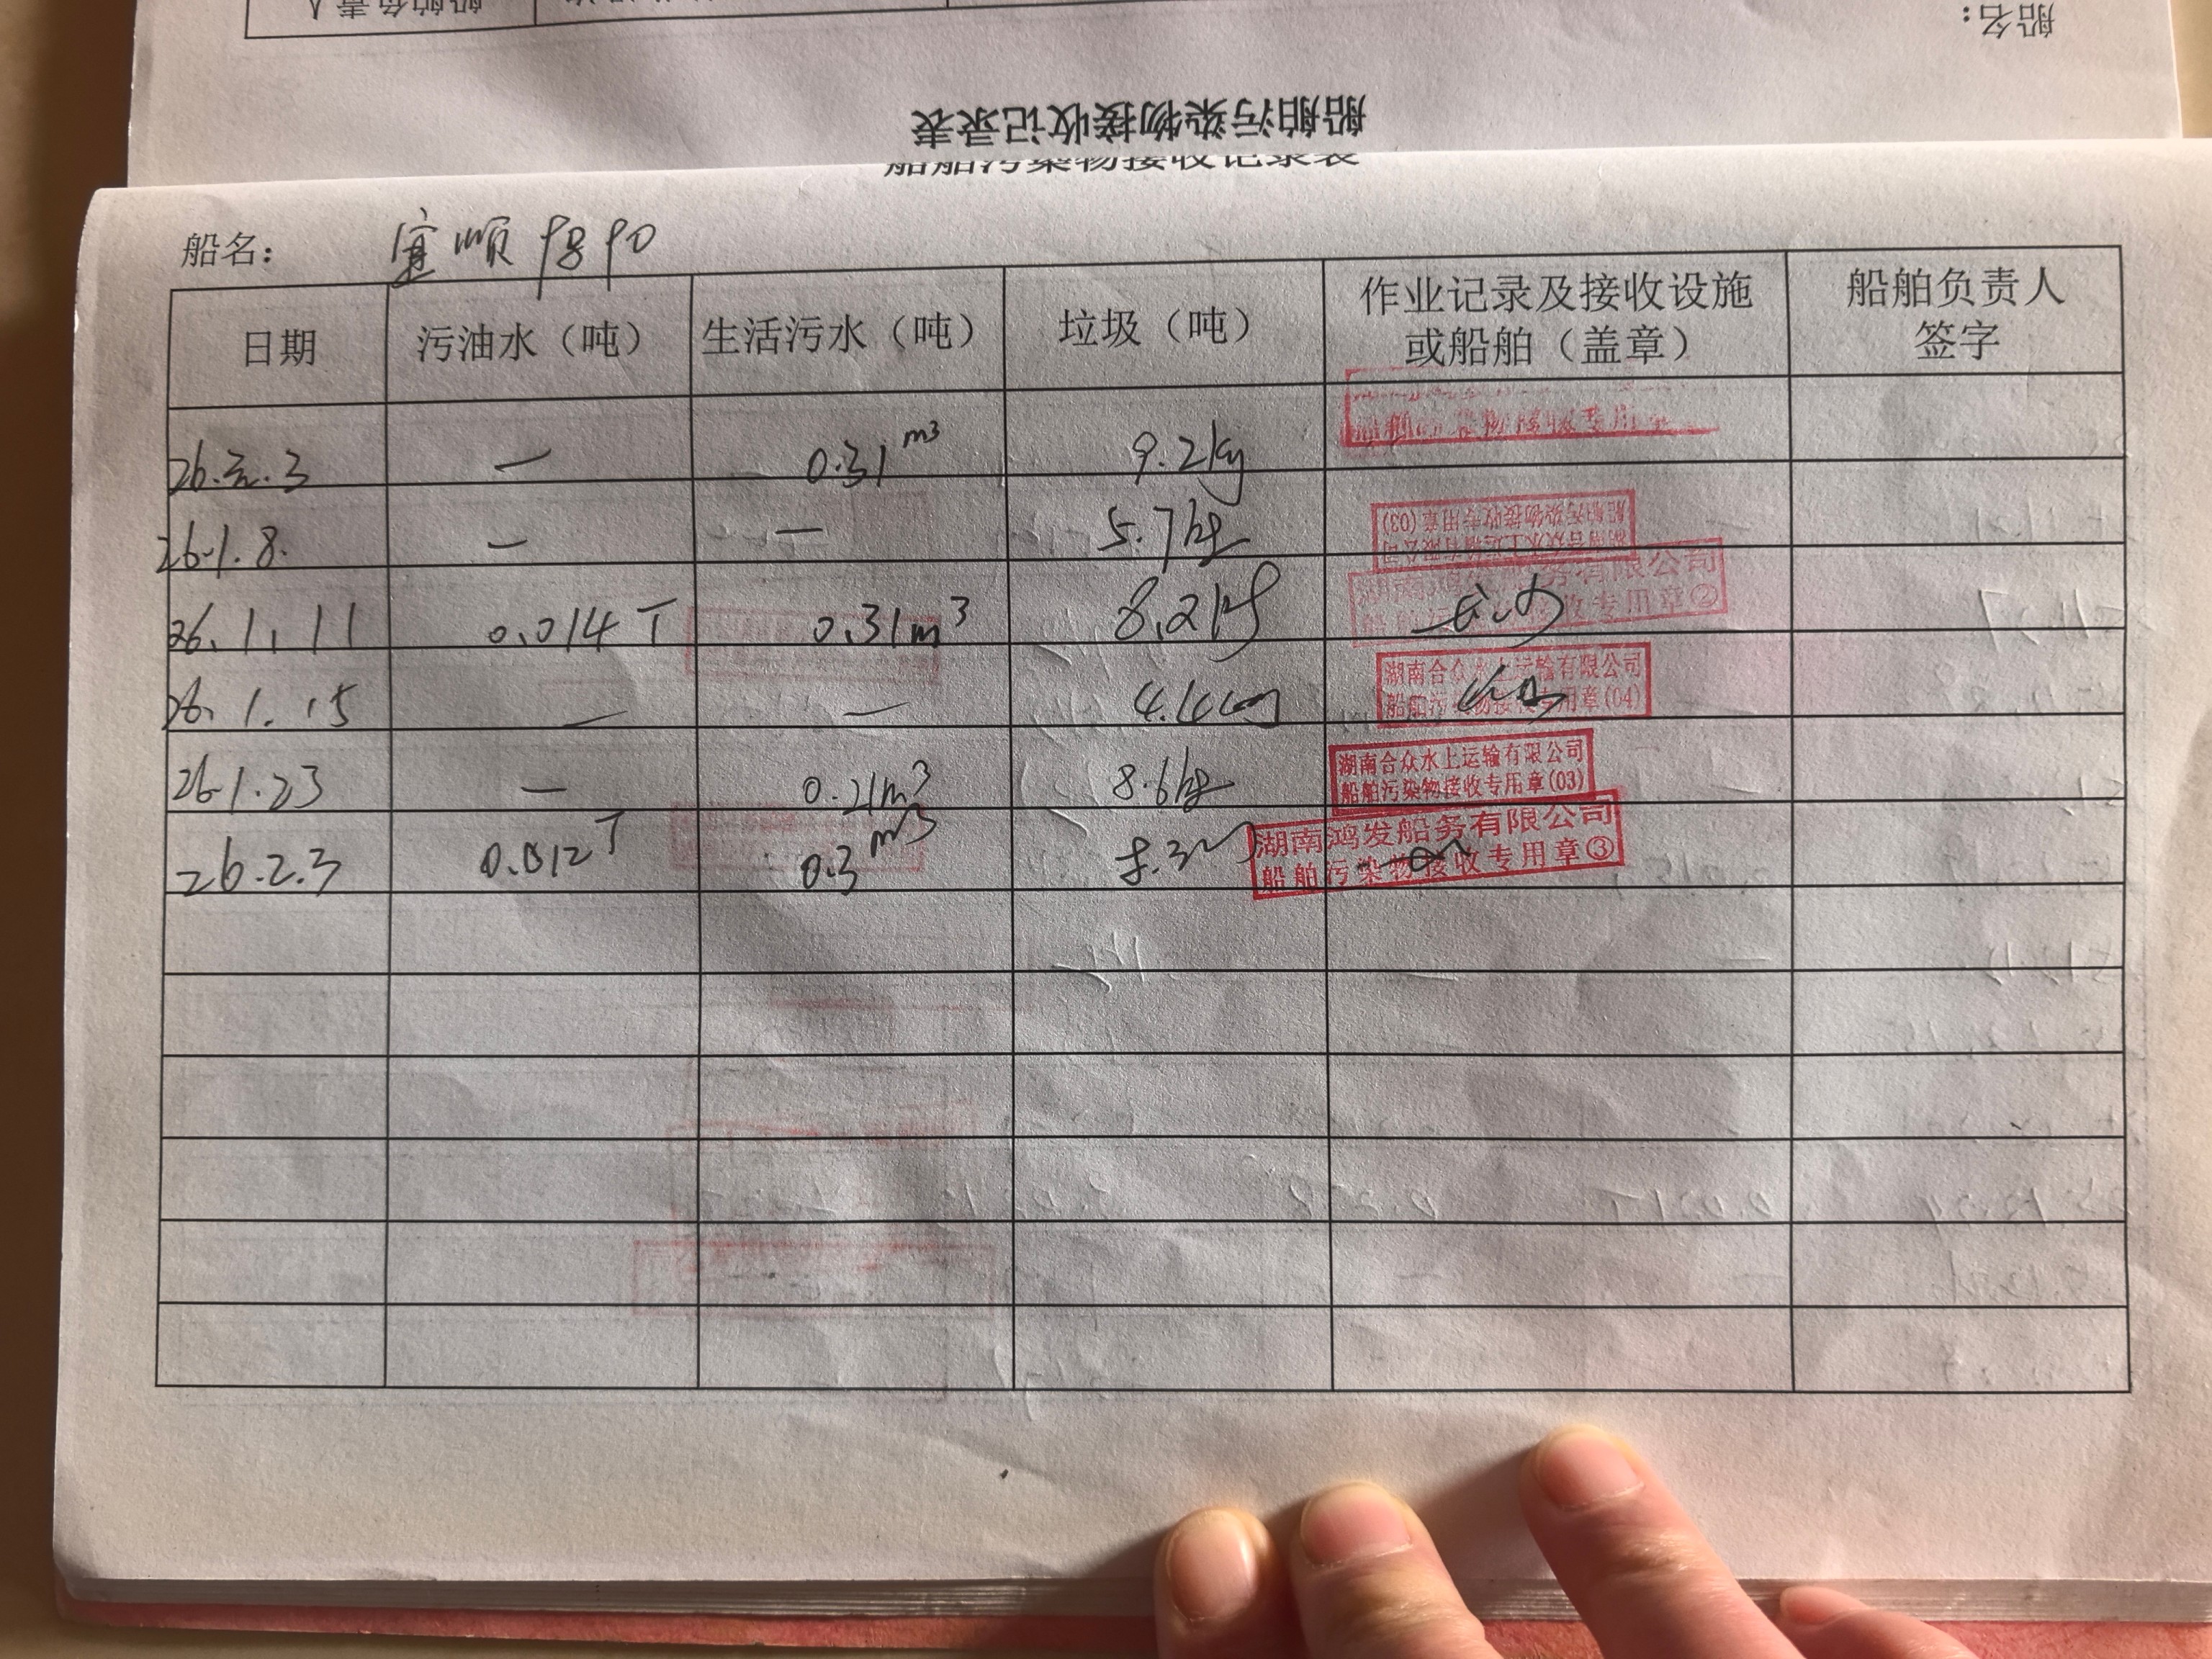 船舶负责人
船名：
船舶污染物接收记录表
船舶污染物接收记录表
船名： 宜顺9890
日期 污油水（吨） 生活污水（吨） 垃圾（吨） 作业记录及接收设施或船舶（盖章） 船舶负责人签字
26.元.3 — 0.31m³ 9.2kg
26.1.8. — — 5.7kg 湖南合众水上运输有限公司 船舶污染物接收专用章(03)
26.1.11 0.014T 0.31m³ 8.2kg 湖南鸿发船务有限公司 船舶污染物接收专用章②
26.1.15 — — 湖南合众水上运输有限公司 船舶污染物接收专用章(04)
26.1.23 — 0.21m³ 8.6kg 湖南合众水上运输有限公司 船舶污染物接收专用章(03)
26.2.3 0.012T 0.3m³ 湖南鸿发船务有限公司 船舶污染物接收专用章③